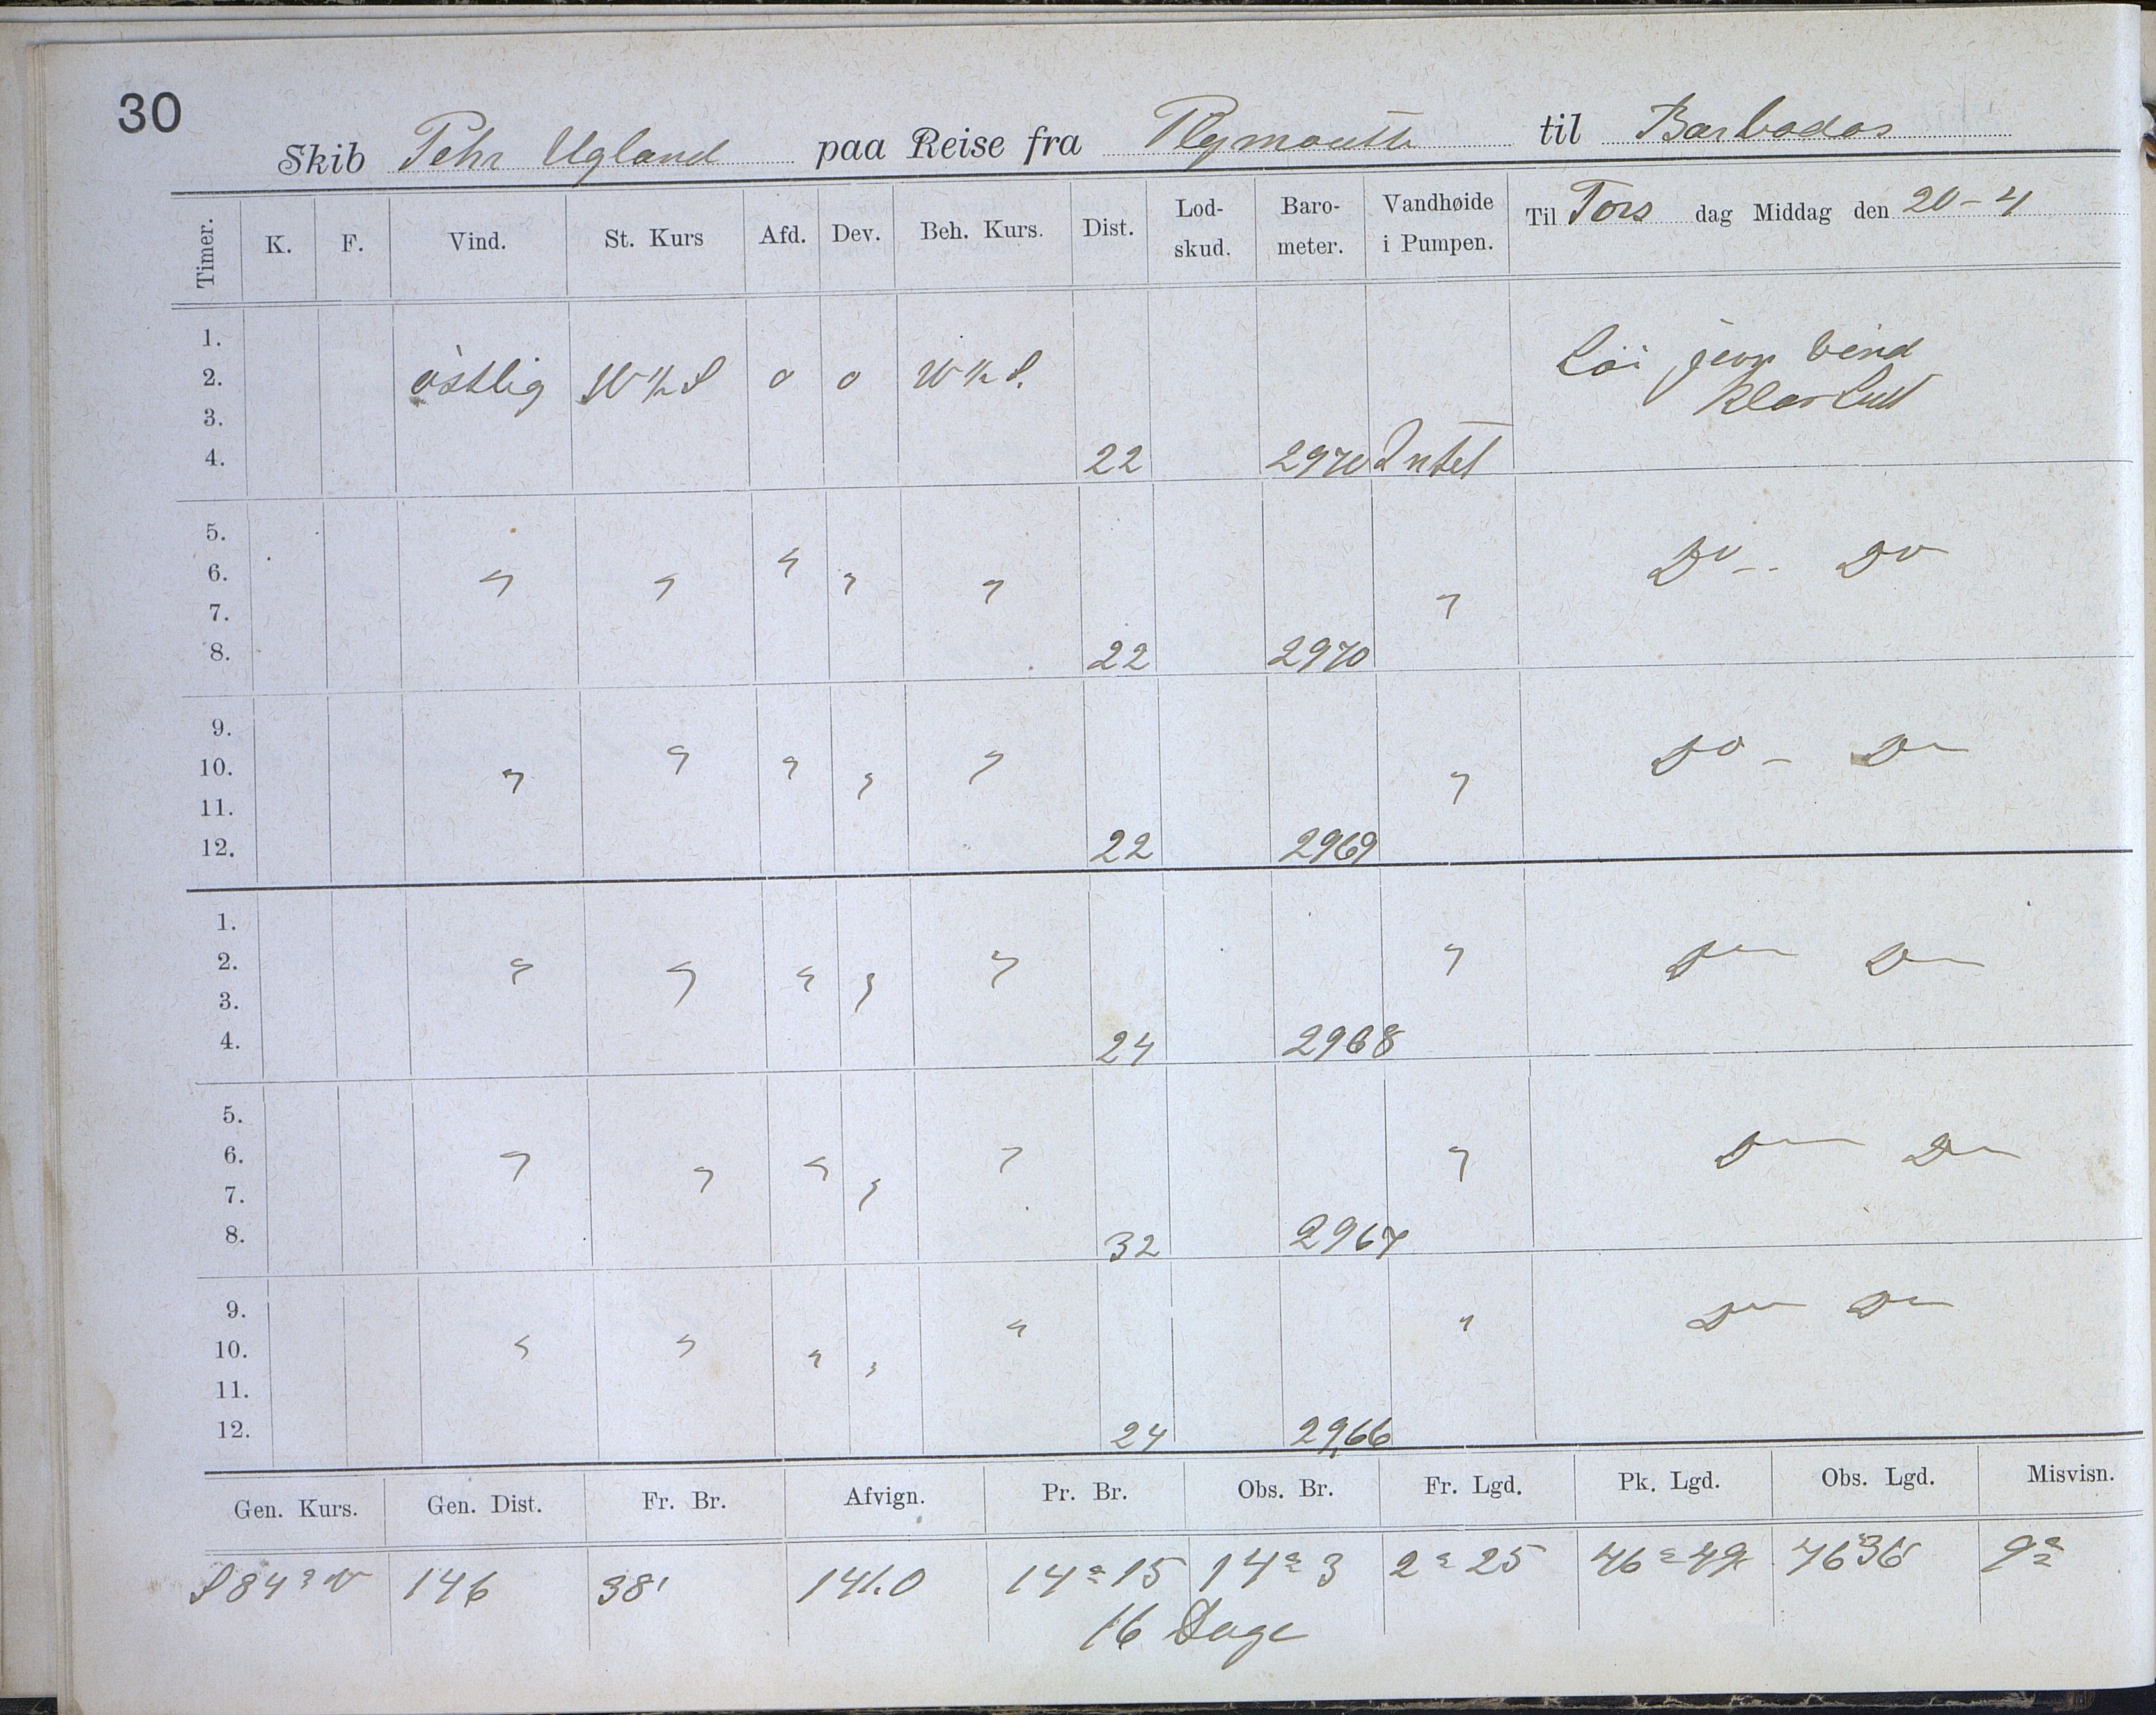 30
Skib Pehr Ugland paa Reise fra Plymouth til Barbados
Timer. K. F. Vind. St. Kurs Afd. Dev. Beh. Kurs. Dist. Lod-skud. Baro-meter. Vandhøide i Pumpen. Til Tors dag Middag den 20-4
1. Löi jevn vind
2. östlig W½S o o W½S. Klar Luft
3.
4. 22 2970 Intet
5.
6. " " " " " " Do - Do
7.
8. 22 2970
9.
10. " " " " " " Do - Do
11.
12. 22 2969
1.
2. " " " " " " Do Do
3.
4. 24 2968
5.
6. " " " " " " Do Do
7.
8. 32 2967
9.
10. " " " " " " Do Do
11.
12. 24 2966
Gen. Kurs. Gen. Dist. Fr. Br. Afvign. Pr. Br. Obs. Br. Fr. Lgd. Pk. Lgd. Obs. Lgd. Misvisn.
S 84° W 146 38' 141.0 14° 15 14° 3 2° 25 46° 49 46 36 9°
16 Dage